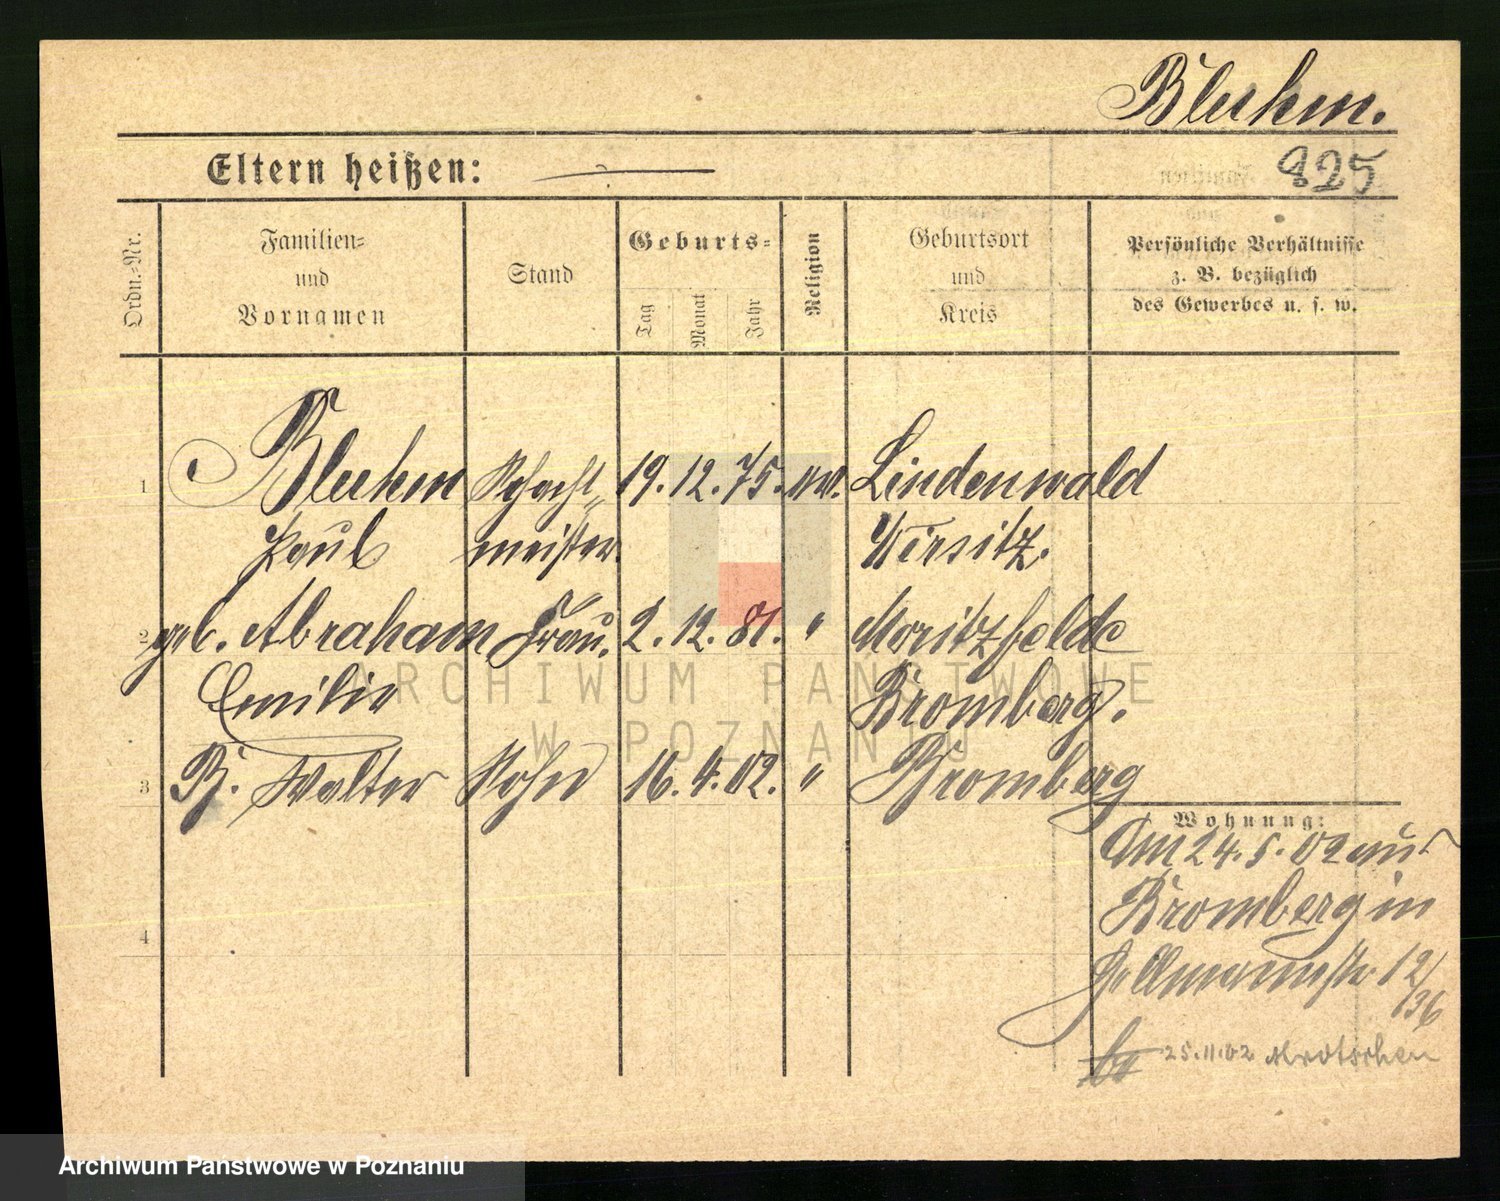 Bluhm.
Eltern heißen: —
825
Ordn.-Nr.
Familien-
und
Vornamen
Stand
Geburts-
Tag
Monat
Jahr
Religion
Geburtsort
und
Kreis
Persönliche Verhältnisse
z. B. bezüglich
des Gewerbes u. s. w.
1 Bluhm Schacht 19. 12. 75. ev. Lindenwald
Paul meister Wirsitz.
2 geb. Abraham Frau. 2. 12. 81. " Moritzfelde
Emilie Bromberg.
3 Walter Sohn 16. 4. 02. " Bromberg
Wohnung:
Am 24. 5. 02 aus
Bromberg in
12/36
4
25.11.02 Mrotschen
ARCHIWUM PAŃSTWOWE
W POZNANIU
Archiwum Państwowe w Poznaniu